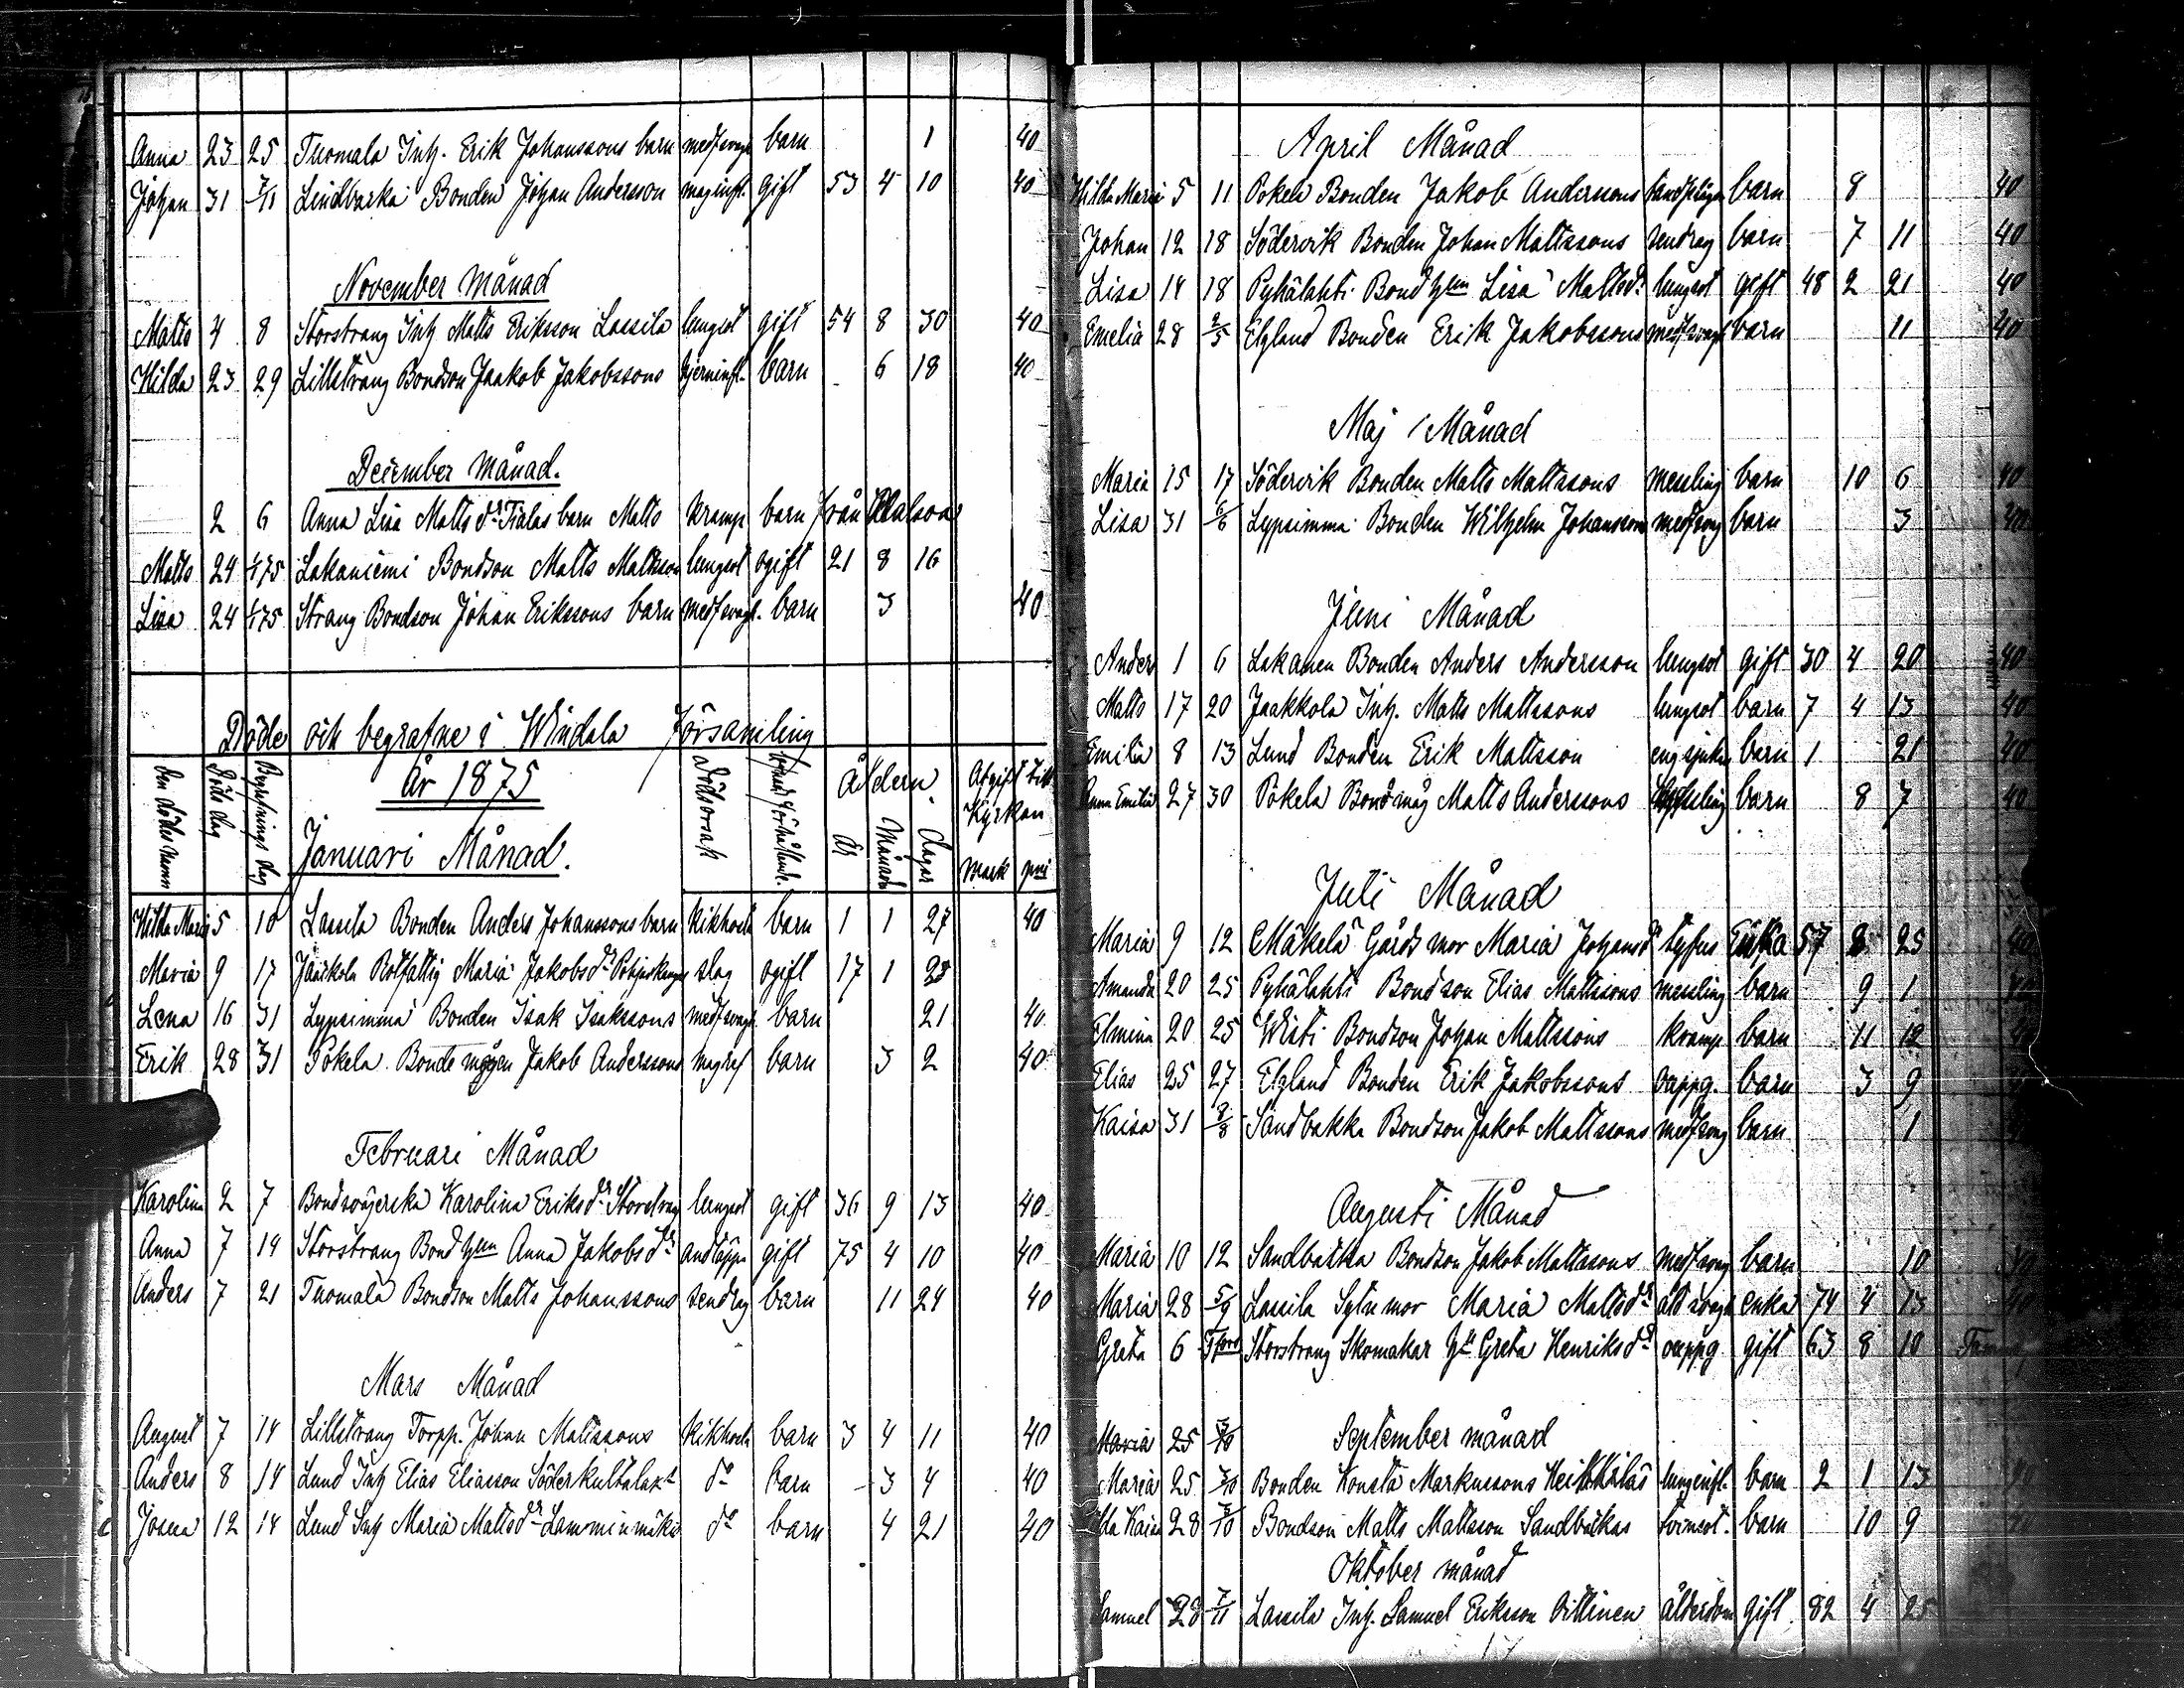 Anna 23 25 Tuomala Inh. Erik Johanssons barn medf svagh barn 1 40
Johan 31 7/11 Lindbacka Bonden Johan Andersson maginfl. gift 53 4 10 40
November Månad
Matts 4 8 Storstrang Inh Matts Eriksson Lassila lungsot gift 54 8 30 40
Hilda 23 29 Lillstrang Bondson Jaakob Jakobssons hjerninfl. barn 6 18 40
December Månad.
2 6 Anna Lisa Matts dr Tialas barn Matts kramp barn från
Matts 24 1/1 75 Lakaniemi Bondson Matts Mattsson lungsot ogift 21 8 16
Lisa 24 1/1 75 Strang Bondson Johan Erikssons barn medf svagh. barn 3 40
Döde och begrafne i Windala Församling
År 1875
Den dödes namn Döds dag Begrafnings dag Dödsorsak Åldern. År Månader Dagar Afgift till Kyrkan Mark pni
Januari Månad.
Hilda Maria 5 10 Lassila Bonden Anders Johanssons barn kikhosta barn 1 1 27 40
Maria 9 17 Jaakkola Rotfattig Maria Jakobs dr slag ogift 17 1 28
Lena 16 31 Lypsimmä Bonden Isak Isakssons medf svagh barn 21 40
Erik 28 31 Pokela Bonde mågen Jakob Anderssons magref barn 3 2 40
Februari Månad
Karolina 2 7 Bondsvägerska Karolina Eriks dr Storstrang lungsot gift 36 9 13 40
Anna 7 14 Storstrang Bond hun Anna Jakobs dr andtäppa gift 75 4 10 40
Anders 7 21 Tuomala Bondson Matts Johanssons sendrag barn 11 24 40
Mars Månad
August 7 14 Lillstrang Torpp. Johan Matissons kikhosta barn 3 4 11 40
Anders 8 14 Lund Inh Elias Eliasson Söderkultalax do barn 3 4 40
Josua 12 14 Lund Inh Maria Matts dr Lamminmäki do barn 4 21 40
April Månad
Hilda Maria 5 11 Pokela Bonden Jakob Anderssons barn 8 40
Johan 12 18 Södervik Bonden Johan Mattssons sendrag barn 7 11 40
Lisa 14 18 Pyhälahti Bond hun Lisa Matts dr lungsot gift 48 2 21 40
Emelia 28 2/5 Elgland Bonden Erik Jakobssons medf svagh barn 11 40
Maj Månad
Maria 15 17 Södervik Bonden Matts Mattssons messling barn 10 6 40
Lisa 31 6/6 Lypsimma Bonden Wilhelm Johanssons medf svag barn 3 40
Juni Månad
Anders 1 6 Lakanen Bonden Anders Andersson lungsot gift 30 4 20 40
Matts 17 20 Jaakkola Inh. Matts Mattssons lungsot barn 7 4 13 40
Emilia 8 13 Lund Bonden Erik Mattsson eng sjukan barn 1 21 40
Anna Emilia 27 30 Pokela Bond måg Matts Anderssons barn 8 7 40
Juli Månad
Maria 9 12 Mäkelä Gårds mor Maria Johans dr tyfus Enka 57 25 40
Amanda 20 25 Pyhälahti Bondson Elias Mattssons messling barn 9 1
Elmina 20 25 Wisti Bondson Johan Mattssons kramp barn 11 12
Elias 25 27 Elgland Bonden Erik Jakobssons ouppg. barn 3 9
Kaisa 31 8/8 Sandbakka Bondson Jakob Mattssons medf svag barn 1
Augusti Månad
Maria 10 12 Sandbakka Bondson Jakob Mattssons medf svag barn 10
Maria 28 5/9 Lassila Sytn mor Maria Matts dr åld svagh enka 74 4 13 40
Greta 6 Storstrang Skomakar hu Greta Henriks dr ouppg gift 63 8 10
September månad
Maria 25 3/10
Maria 25 3/10 Bonden Konsta Markussons lunginfl. barn 2 1 13
Kaisa 28 3/10 Bondson Matts Mattsson Sandbakas tvinsot. barn 10 9
Oktober månad
Samuel 28 7/11 Lassila Inh. Samuel Eriksson Oittinen ålderdom gift 82 4 25